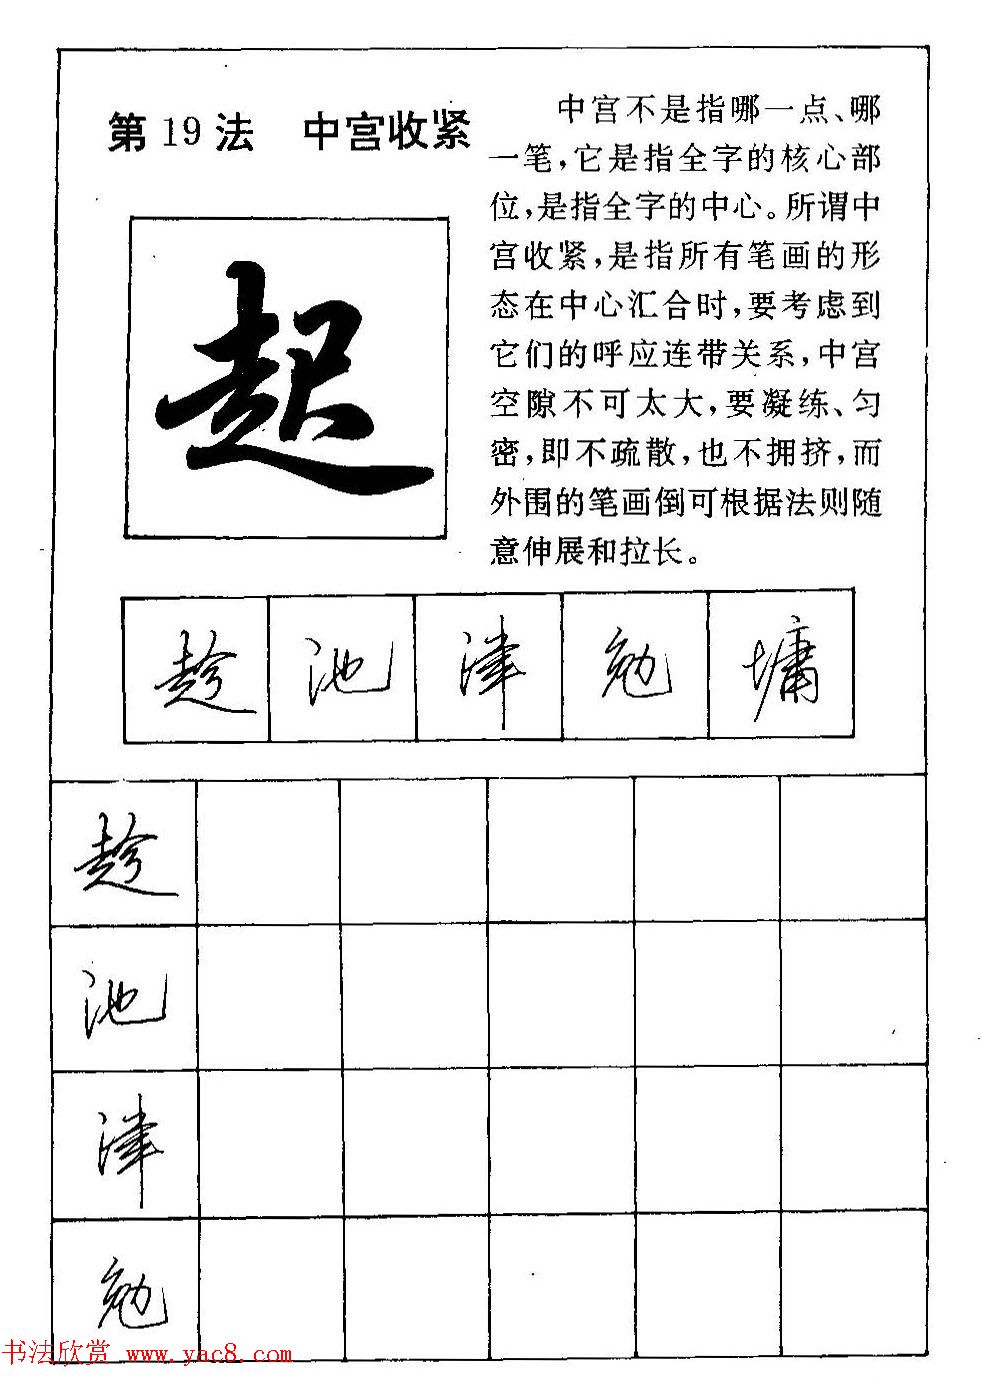 第19法 中宫收紧
中宫不是指哪一点、哪
一笔，它是指全字的核心部
位，是指全字的中心。所谓中
宫收紧，是指所有笔画的形
态在中心汇合时，要考虑到
它们的呼应连带关系，中宫
空隙不可太大，要凝练、匀
密，即不疏散，也不拥挤，而
外围的笔画倒可根据法则随
意伸展和拉长。
起
趁 池 津 勉 墉
趁
池
津
勉
书法欣赏 www.yac8.com